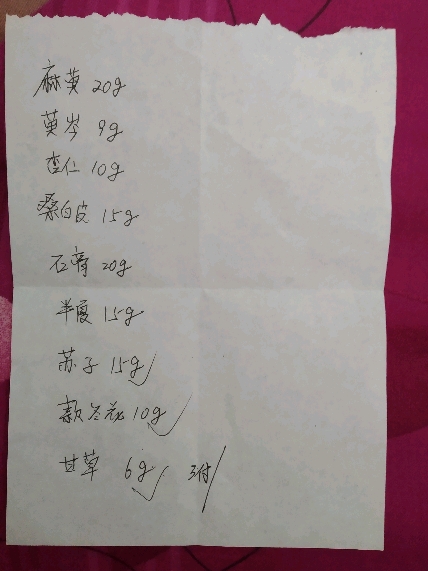 麻黄 20g
黄岑 9g
杏仁 10g
桑白皮 15g
石膏 20g
半夏 15g
苏子 15g
款冬花 10g
甘草 6g 3付